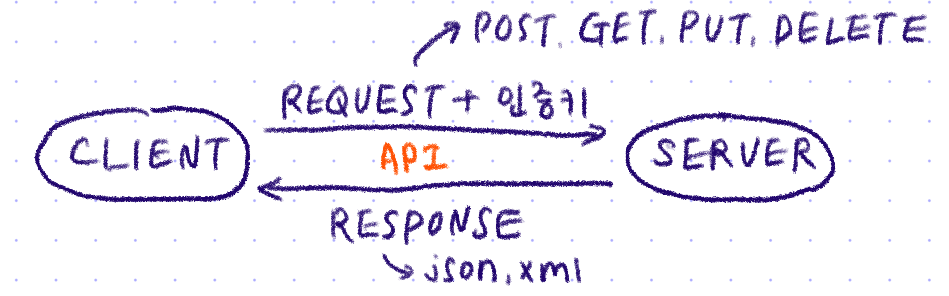 POST, GET, PUT, DELETE
REQUEST + 인증키
CLIENT
API
SERVER
RESPONSE
json, xml